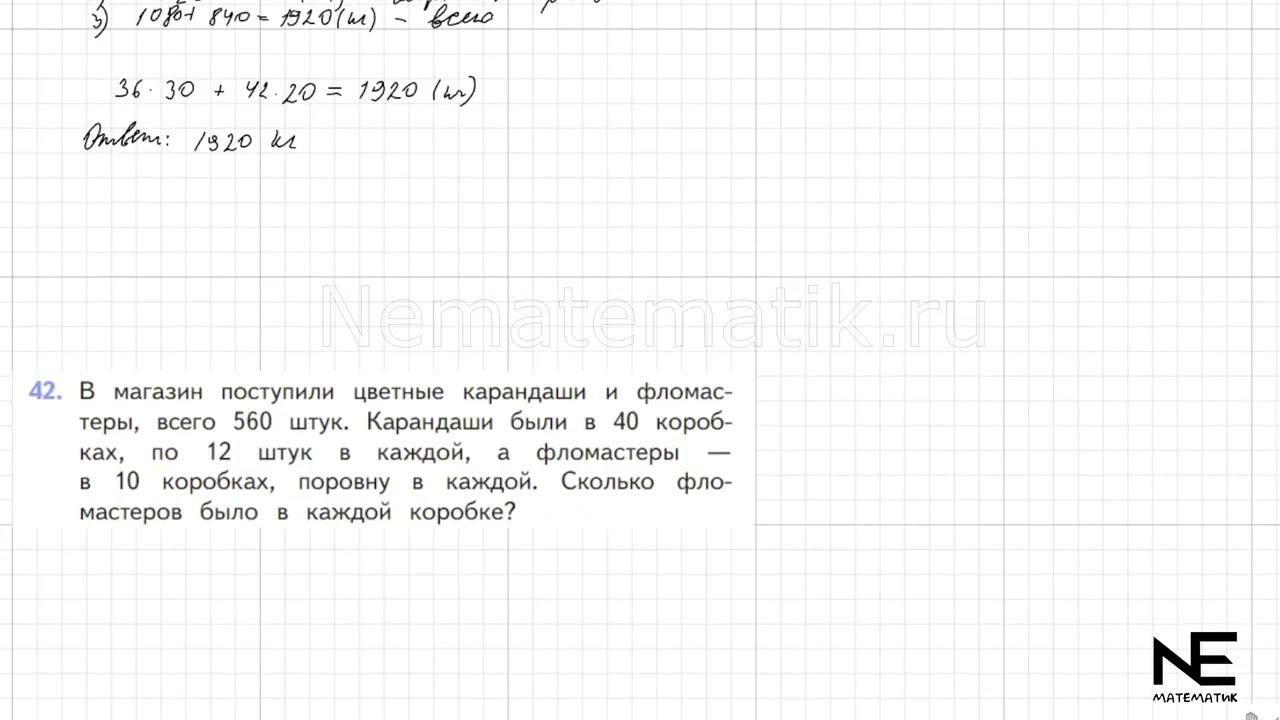 3) 1080 + 840 = 1920 (кг) – всего
36 · 30 + 42 · 20 = 1920 (кг)
Ответ: 1920 кг
Nematematik.ru
42. В магазин поступили цветные карандаши и фломас-
теры, всего 560 штук. Карандаши были в 40 короб-
ках, по 12 штук в каждой, а фломастеры —
в 10 коробках, поровну в каждой. Сколько фло-
мастеров было в каждой коробке?
NE
МАТЕМАТИК